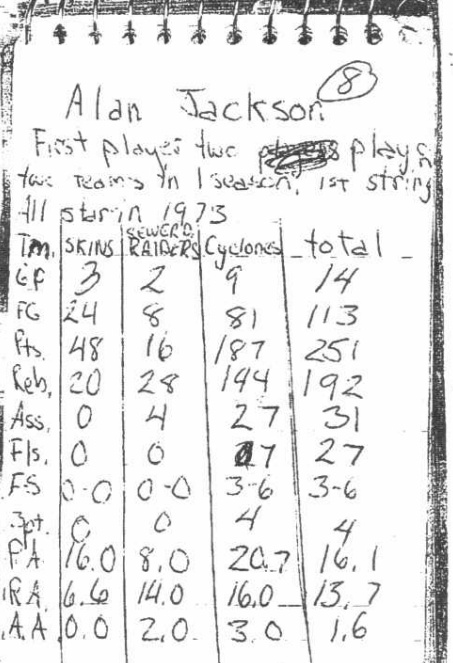 8
Alan Jackson
First player two plays
two teams in 1 season, 1st string
All star in 1973
Tm. SKINS SEWER'D RAIDERS Cyclones total
GP 3 2 9 14
FG 24 8 81 113
Pts. 48 16 187 251
Reb. 20 28 144 192
Ass. 0 4 27 31
Fls. 0 0 27 27
FS 0-0 0-0 3-6 3-6
3pt. 0 0 4 4
P.A. 16.0 8.0 20.7 16.1
R.A 6.6 14.0 16.0 13.7
A.A. 0.0 2.0 3.0 1.6